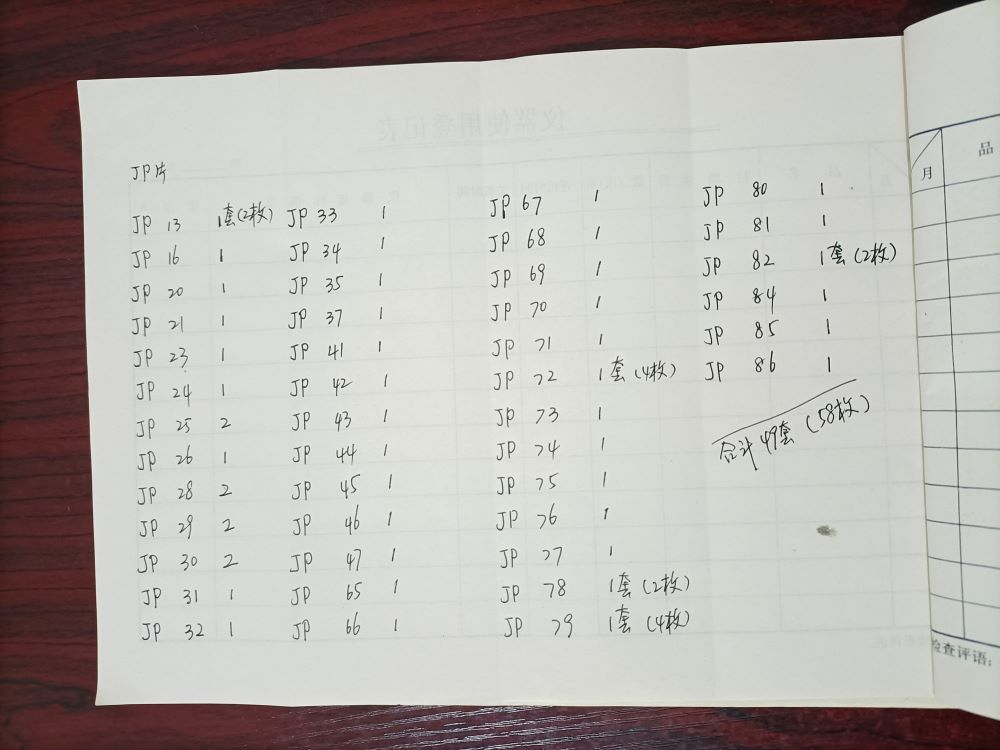 JP片
JP 13 1套(2枚)
JP 16 1
JP 20 1
JP 21 1
JP 23 1
JP 24 1
JP 25 2
JP 26 1
JP 28 2
JP 29 2
JP 30 2
JP 31 1
JP 32 1
JP 33 1
JP 34 1
JP 35 1
JP 37 1
JP 41 1
JP 42 1
JP 43 1
JP 44 1
JP 45 1
JP 46 1
JP 47 1
JP 65 1
JP 66 1
JP 67 1
JP 68 1
JP 69 1
JP 70 1
JP 71 1
JP 72 1套(4枚)
JP 73 1
JP 74 1
JP 75 1
JP 76 1
JP 77 1
JP 78 1套(2枚)
JP 79 1套(4枚)
JP 80 1
JP 81 1
JP 82 1套(2枚)
JP 84 1
JP 85 1
JP 86 1
合计49套(58枚)
品
月
检查评语:
仪器使用登记表